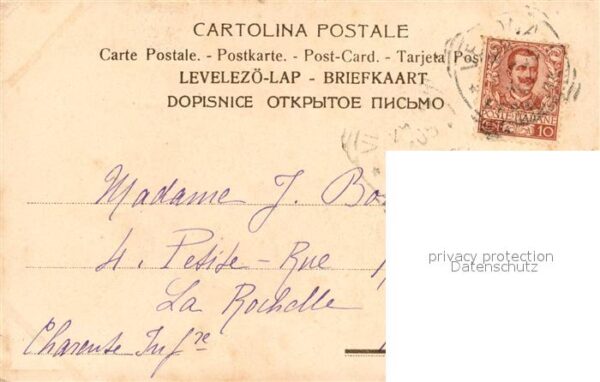 CARTOLINA POSTALE
Carte Postale. - Postkarte. - Post-Card. - Tarjeta Pos
LEVELEZÖ-LAP - BRIEFKAART
DOPISNICE ОТКРЫТОЕ ПИСЬМО
POSTE
10
Madame J. Bo
4. Petite-Rue
La Rochelle
Charente Infre
privacy protection
Datenschutz